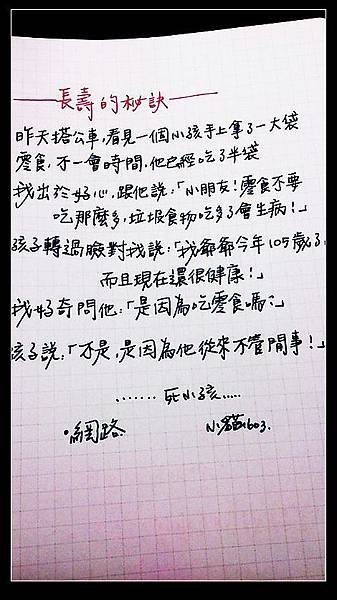 長壽的秘訣
昨天搭公車,看見一個小孩手上拿了一大袋
零食,不一會時間,他已經吃了半袋
我出於好心,跟他說:「小朋友!零食不要
吃那麼多,垃圾食物吃多了會生病!」
孩子轉過臉對我說:「我爺爺今年105歲了,
而且現在還很健康!」
我好奇問他:「是因為吃零食嗎?」
孩子說:「不是,是因為他從來不管閒事!」
.......死小孩.....
•網路
小貓1603.